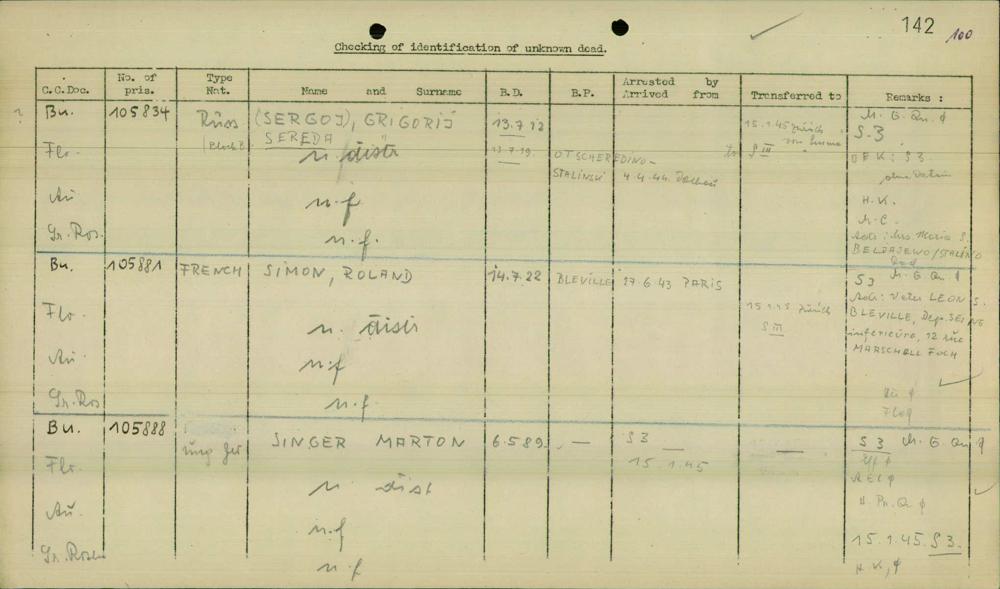 142 100
Checking of identification of unknown dead.
C.C.Doc. No. of pris. Type Nat. Name and Surname B.D. B.P. Arrested by Arrived from Transferred to Remarks :
? Bu. 105834 Russ (SERGOJ), GRIGORIJ 13.7.12 15.1.45 zurück M. G. Qu. ϕ
SEREDA " von S-3
Flo. n. distr 13.7.19. OTSCHEREDINO- S III OEK: S3
STALINSKI 4.4.44. Dachau
Au n.f H.K.
M.C.
Gr.Ros. n.f. Adr: Mrs Maria S.
BELDAJEWO/STALINO
Bu. 105881 FRENCH SIMON, ROLAND 14.7.22 BLEVILLE 27.6.43 PARIS S3 M. G. Qu ϕ
15.1.45 zurück Adr: Vater LEON S.
Flo. n. distr S III BLEVILLE, Dep. SEINE
inferieure, 12 rue
Au. n.f MARSCHALL FOCH
Gr.Ros n.f. Au ϕ
Floq
Bu. 105888 ung Jud SINGER MARTON 6.5.89. — S3 — S3 M. G. Qu ϕ
15.1.45
Flo. n. dist
H. Pr. Q ϕ
Au. n.f
15.1.45. S3.
Gr.Rosen n.f H.K, ϕ